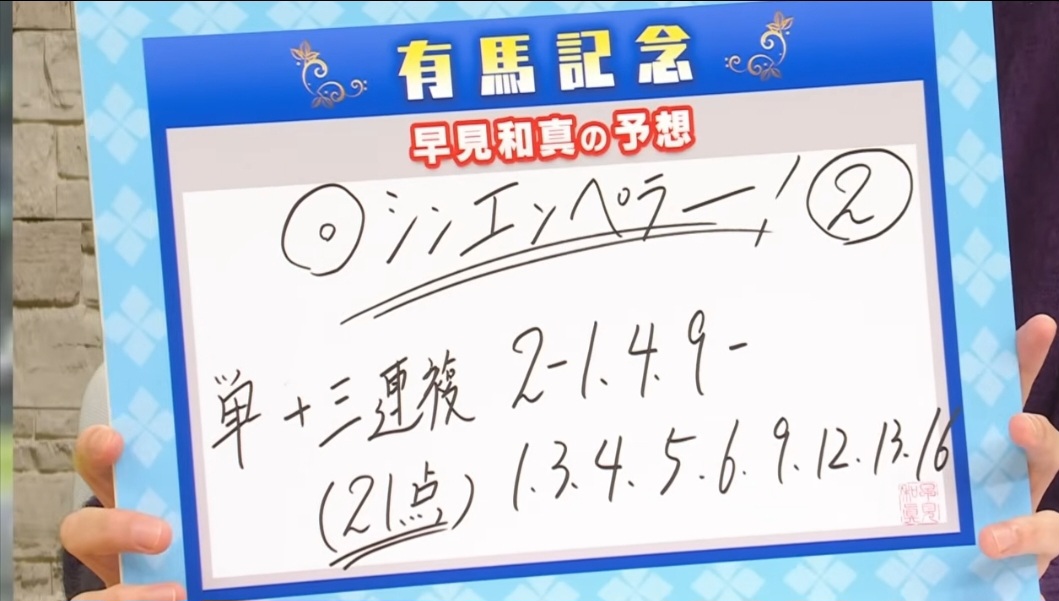 有馬記念
早見和真の予想
◎シンエンペラー! ②
単+三連複 2-1.4.9-
(21点) 1.3.4.5.6.9.12.13.16
早見和真